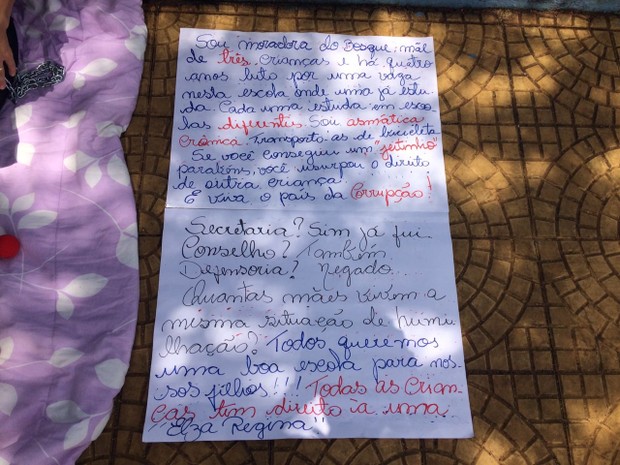 Sou moradora do Bosque, mãe
de três crianças e há quatro
anos luto por uma vaga
nesta escola onde uma já estu
da. Cada uma estuda em esco
las diferentes. Sou asmática
crônica. Transporto-as de bicicleta
Se você conseguiu um "jeitinho"
parabéns, você usurpou o direito
de outra criança.
E viva o país da Corrupção!
Secretaria? Sim já fui.
Conselho? Também
Defensoria? Negado...
Quantas mães vivem a
mesma situação de humi
lhação? Todos queremos
uma boa escola para nos
sos filhos!!! Todas as crian
ças têm direito à uma
"Elza Regina"